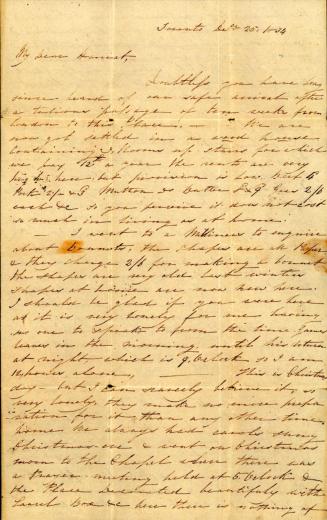 Toronto Decr 25. 1834
My Dear Hannah,
Doubtless you have long
since heard of our safe arrival after
a tedious passage of ten weeks from
London to this place. We are
now got settled in a wood house
containing 2 Rooms up stairs for which
we pay a year the rents are very
high here but provision is low. Beef
Pork 2/2 & Mutton & Butter Geese 2/6
each & so you perceive it does not cost
so much in living as at home.
I went to a Milliners to enquire
about Bonnets, the shapes are
& they charge 2/6 for making a bonnet
the shapes are very old last winter
shapes at home are now new here.
I should be glad if you were here
as it is very lonely for me having
no one to speak to from the time James
leaves in the morning until his return
at night which is 9 oClock so I am
hours alone, This is Christmas
day but I can scarcely believe it, so
very lonely, they make no more prepa
ration for it than any other time.
Home we always had carols sung
Christmas eve & went on Christmas
morn to the Chapel where there was
a Prayer meeting held at 6 oClock &
the Place decorated beautifully with
Laurel Box & here there is nothing of